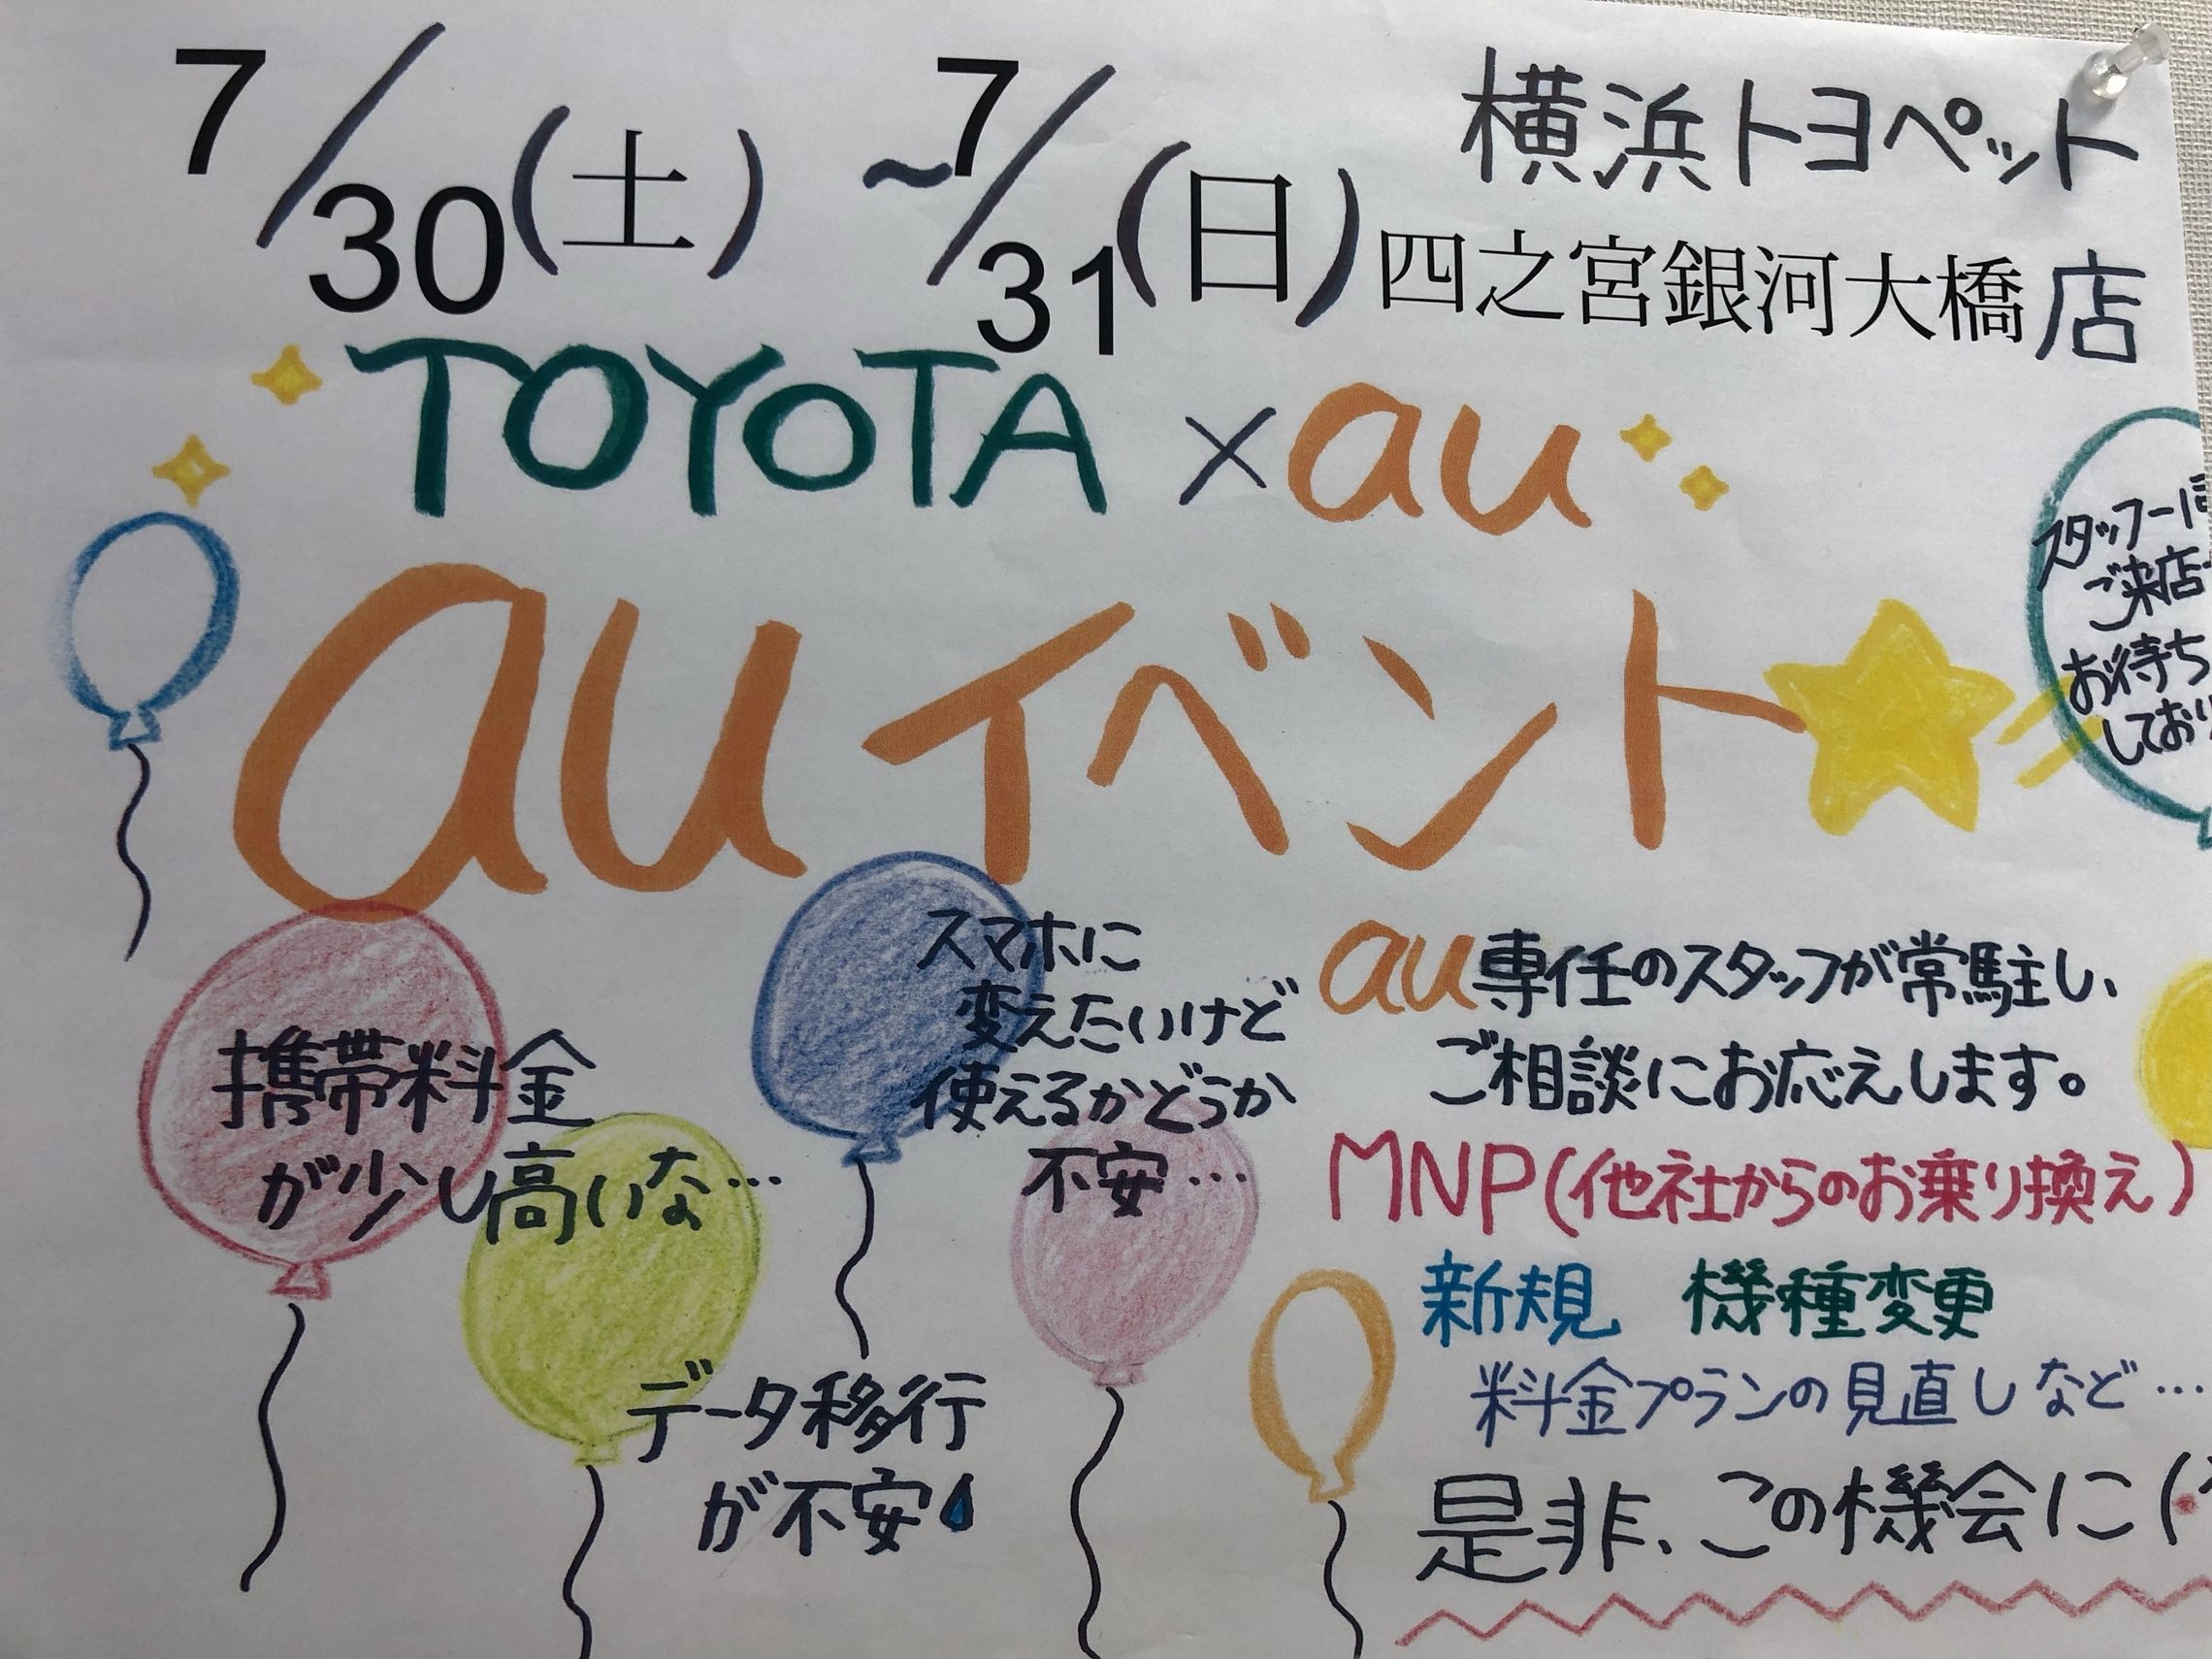 7/30(土) ~7/31(日)
横浜トヨペット
四之宮銀河大橋店
TOYOTA×au
auイベント
スタッフ一同
ご来店
お待ち
しており
携帯料金
が少し高いな…
スマホに
変えたいけど
使えるかどうか
不安…
データ移行
が不安
au専任のスタッフが常駐し、
ご相談にお応えします。
MNP(他社からのお乗り換え)
新規 機種変更
料金プランの見直しなど…
是非、この機会に(